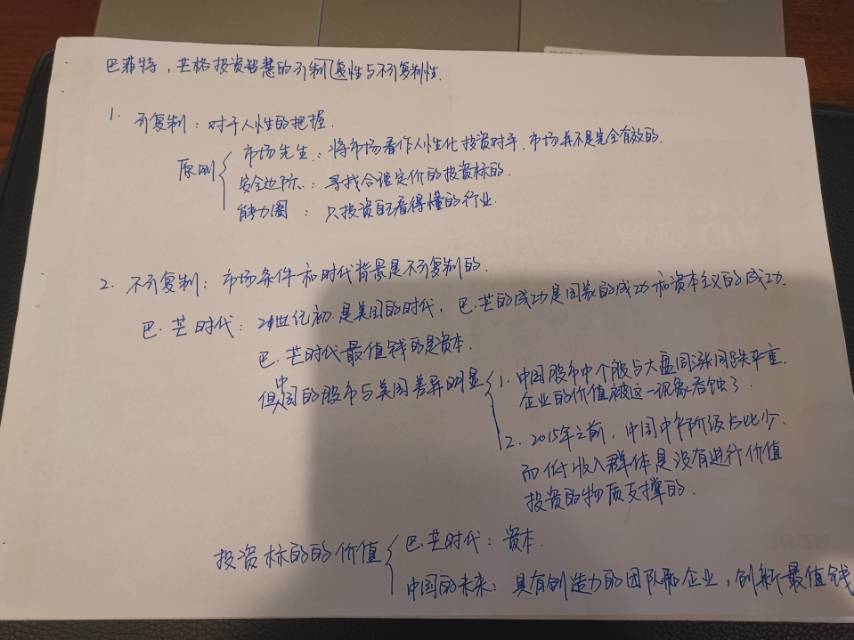 巴菲特,芒格投资智慧的可复制性与不可复制性.
1. 可复制:对于人性的把握.
原则
市场先生:将市场看作人性化投资对手.市场并不是完全有效的.
安全边际:寻找合理定价的投资标的.
能力圈:只投资自己看得懂的行业.
2. 不可复制:市场条件和时代背景是不可复制的.
巴.芒时代:世纪初是美国的时代,巴.芒的成功是国家的成功和资本主义的成功.
巴.芒时代最值钱的是资本.
但中国的股市与美国差异明显
1. 中国股市中个股与大盘同涨同跌严重.
企业的价值被这一现象吞蚀了
2. 2015年之前,中国中等阶级占比少.
而低收入群体是没有进行价值
投资的物质支撑的.
投资标的的价值
巴.芒时代:资本.
中国的未来:具有创造力的团队和企业,创新最值钱